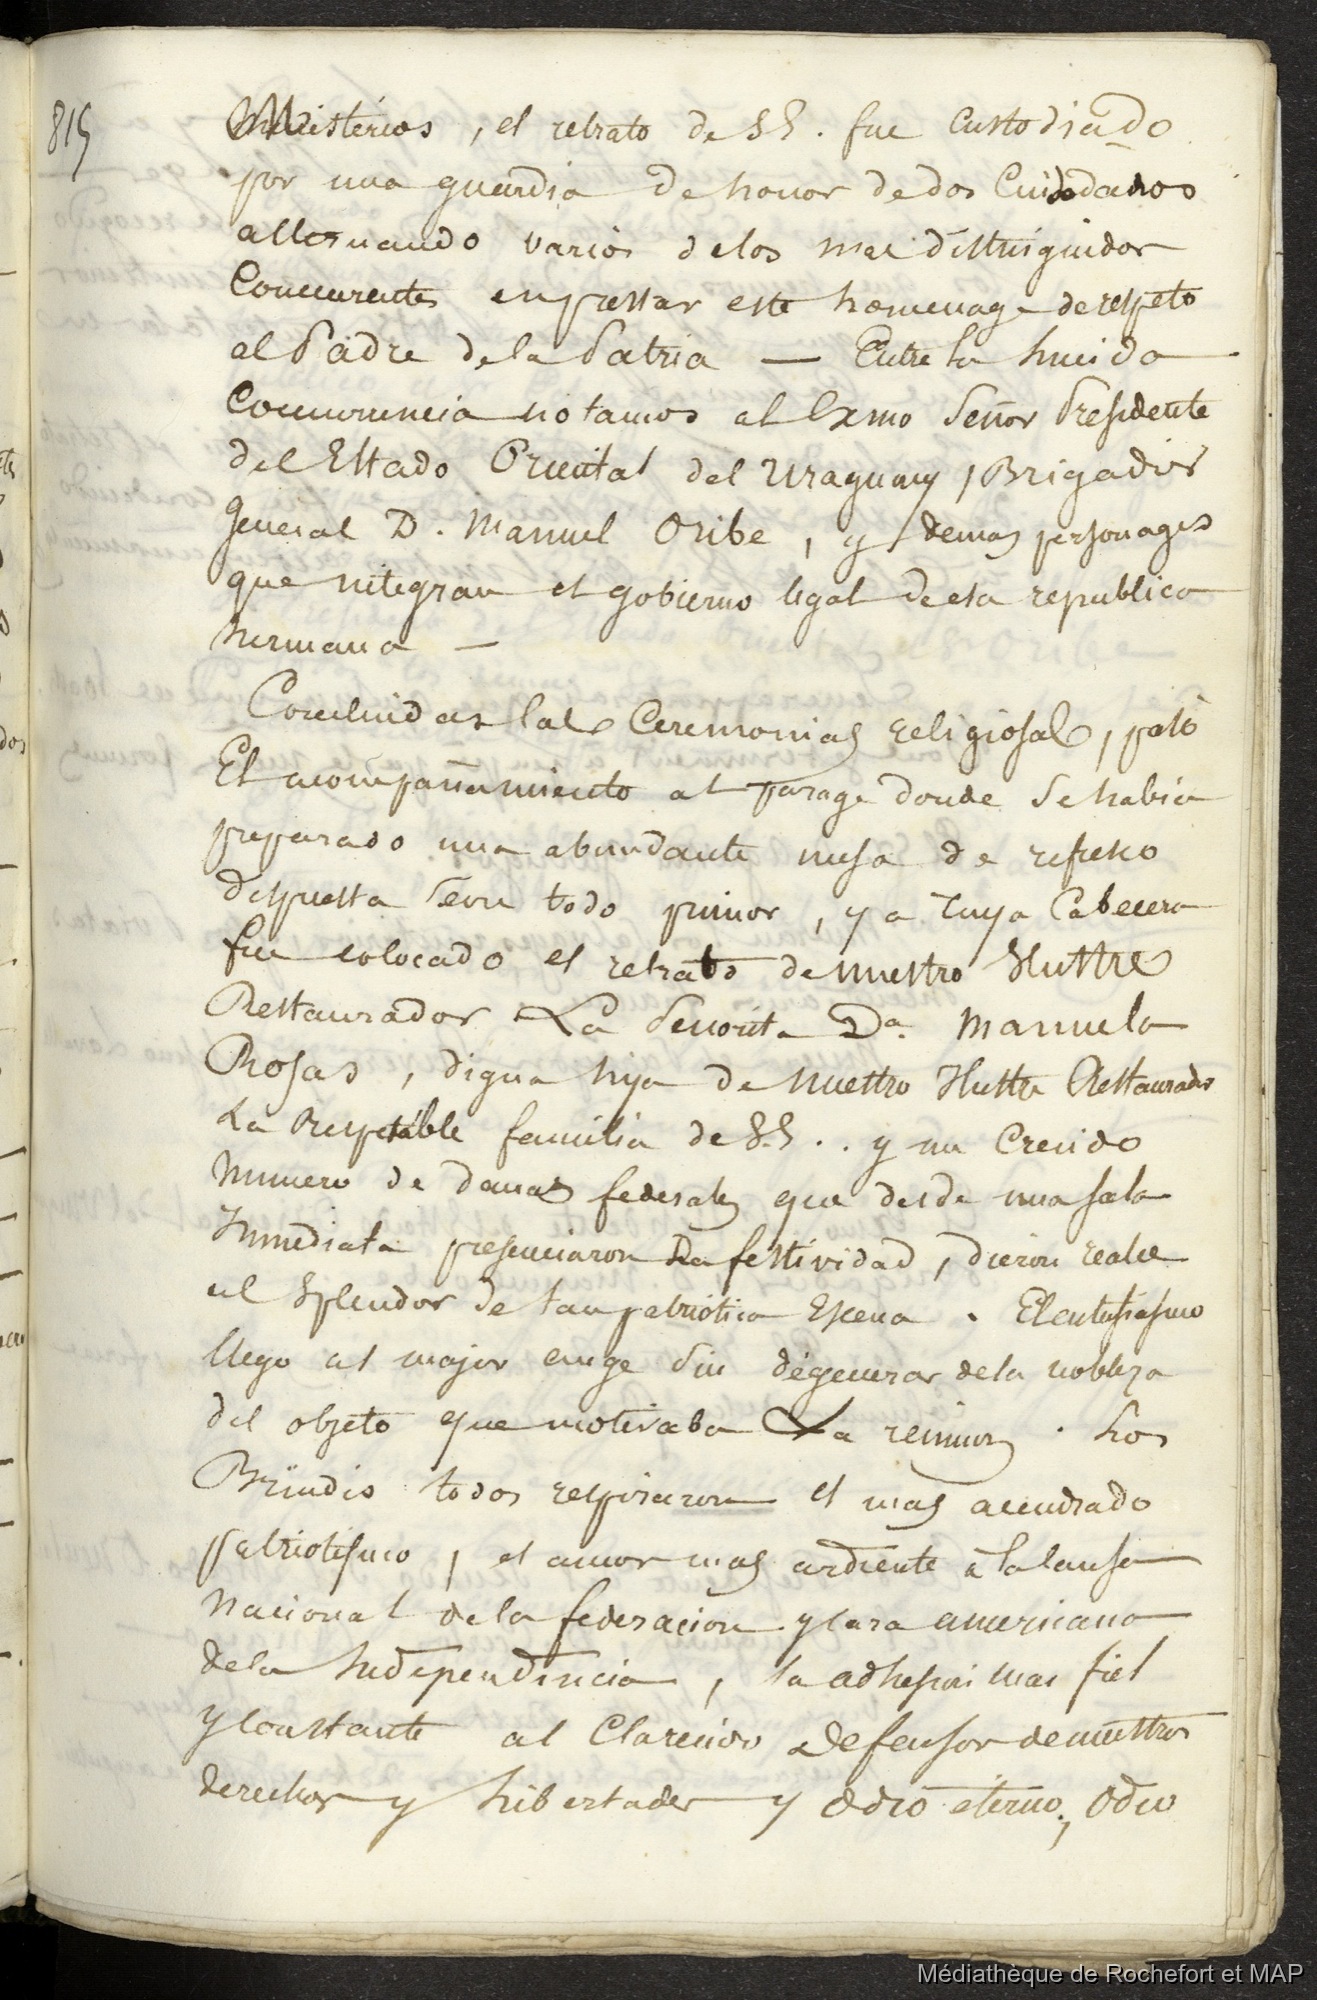 815
Ministerios, el retrato de S.E. fue Custodiado
por una guardia de honor de dos Cuidadanos
alternando varios delos mas distinguidos
Concurentes en prestar este homenage de respeto
al Padre de la Patria — Entre la lucida
Concurrencia notamos al Exmo Señor Presidente
del Estado Oriental del Uraguay, Brigadier
General D. Manuel Oribe, y demas personages
que integran el gobierno legal de esa republica
hermana —
Concluidas las Ceremonias religiosas, pasó
El acompañamiento al parage donde se habia
preparado una abundante mesa de refresco
dispuesta con todo primor, y a cuya Cabecera
fue colocado el retrato de nuestro Ilustre
Restaurador La Señorita Da. Manuela
Rosas, digna hija de nuestro Ilustre Restaurador
La Respetable familia de S.E.. y un Crecido
Numero de damas federales que desde una sala
Inmediata presenciaron La festividad, dieron realce
al Splendor de tan patriótica Escena. El entusiasmo
llego al major auge Sin degenerar dela nobleza
del objeto que motivaba La reunion. Los
Brindis todos respiraron el mas acendrado
patriotismo, el amor mas ardiente à la Causa
Nacional de la federacion y Cara americana
dela Independencia, la adhesion mas fiel
y Constante al Clarecido Defensor de nuestros
derechos y Libertades y Odio éterno, Odio
Médiathèque de Rochefort et MAP